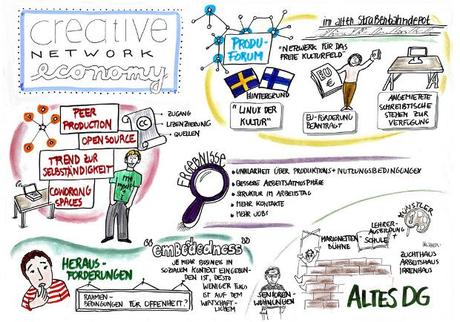 creative
NETWORK
economy
PRODU-
FORUM
im alten Straßenbahndepot
"NETZWERK FÜR DAS
FREIE KULTURFELD"
HINTERGRUND
"LINUX DER
KULTUR"
EU-FÖRDERUNG
BEANTRAGT
ANGEMIETETE
SCHREIBTISCHE
STEHEN ZUR
VERFÜGUNG
PEER
PRODUCTION
OPEN SOURCE
TREND ZUR
SELBSTÄNDIGKEIT
COWORKING
SPACES
CC
ZUGANG
LIZENZIERUNG
QUELLEN
ERGEBNISSE
UNKLARHEIT ÜBER PRODUKTIONS + NUTZUNGSBEDINGUNGEN
BESSERE ARBEITSATMOSPHÄRE
STRUKTUR IM ARBEITSTAG
MEHR KONTAKTE
MEHR JOBS
HERAUS-
FORDERUNGEN
RAHMEN-
BEDINGUNGEN FÜR OFFENHEIT?
"embeddedness"
JE MEHR BUSINESS IN
SOZIALEM KONTEXT EINGEBUN-
DEN IST, DESTO
WENIGER FOKUS
IST AUF DEM
WIRTSCHAFT-
LICHEM
MARIONETTEN
BÜHNE
LEHRER-
AUSBILDUNG
SCHULE
KÜNSTLER
ZUCHTHAUS
ARBEITSHAUS
IRRENHAUS
SENIOREN-
WOHNUNGEN
ALTES DG